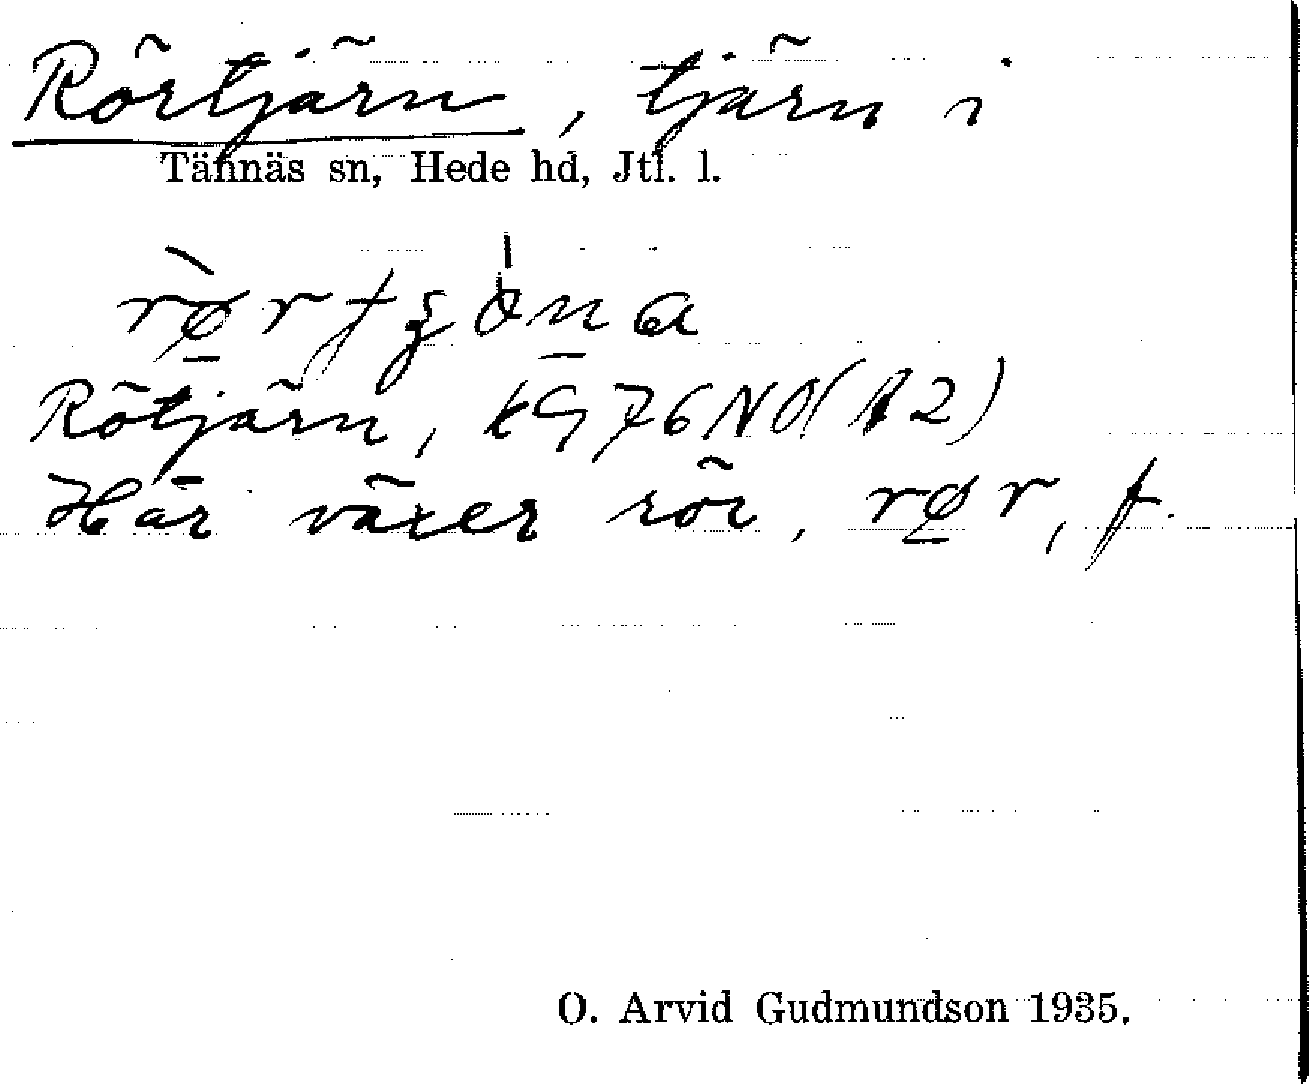 Rörtjärn, tjärn i
Tännäs sn, Hede hd, Jtl. l.
Rötjärn, kG76NO(A2)
Här växer rör, rø̱r, f.
O. Arvid Gudmundson 1935.